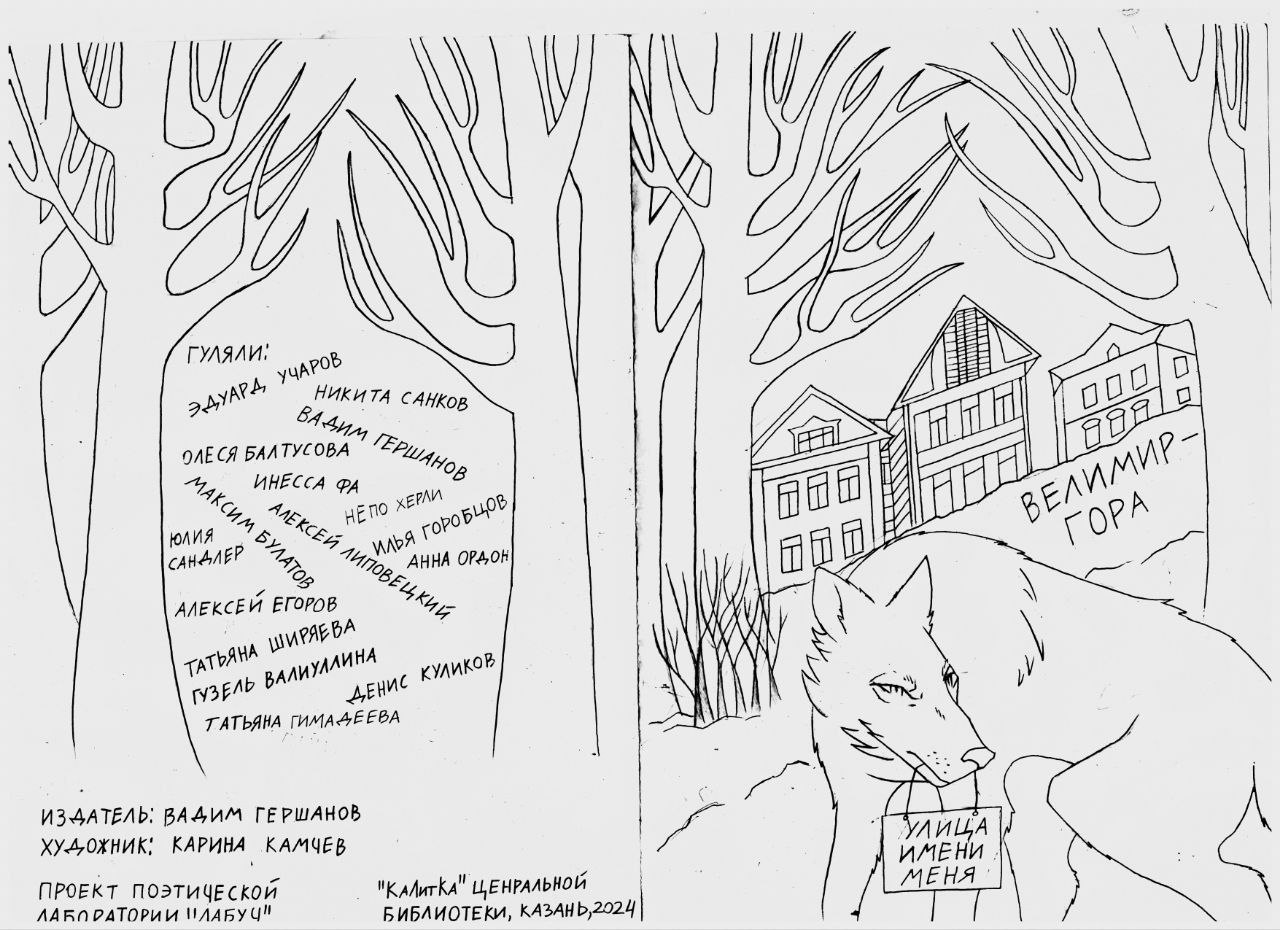 ГУЛЯЛИ:
ЭДУАРД УЧАРОВ
НИКИТА САНКОВ
ВАДИМ ГЕРШАНОВ
ОЛЕСЯ БАЛТУСОВА
ИНЕССА ФА
МАКСИМ БУЛАТОВ
АЛЕКСЕЙ ЛИПОВЕЦКИЙ
НЕПО ХЕРЛИ
ИЛЬЯ ГОРОБЦОВ
ЮЛИЯ
САНДЛЕР
АННА ОРДОН
АЛЕКСЕЙ ЕГОРОВ
ТАТЬЯНА ШИРЯЕВА
ГУЗЕЛЬ ВАЛИУЛЛИНА
ДЕНИС КУЛИКОВ
ТАТЬЯНА ГИМАДЕЕВА
ИЗДАТЕЛЬ: ВАДИМ ГЕРШАНОВ
ХУДОЖНИК: КАРИНА КАМЧЕВ
ПРОЕКТ ПОЭТИЧЕСКОЙ
ЛАБОРАТОРИИ "ЛАБУЧ"
"КАЛИТКА" ЦЕНРАЛЬНОЙ
БИБЛИОТЕКИ, КАЗАНЬ, 2024
ВЕЛИМИР-
ГОРА
УЛИЦА
ИМЕНИ
МЕНЯ